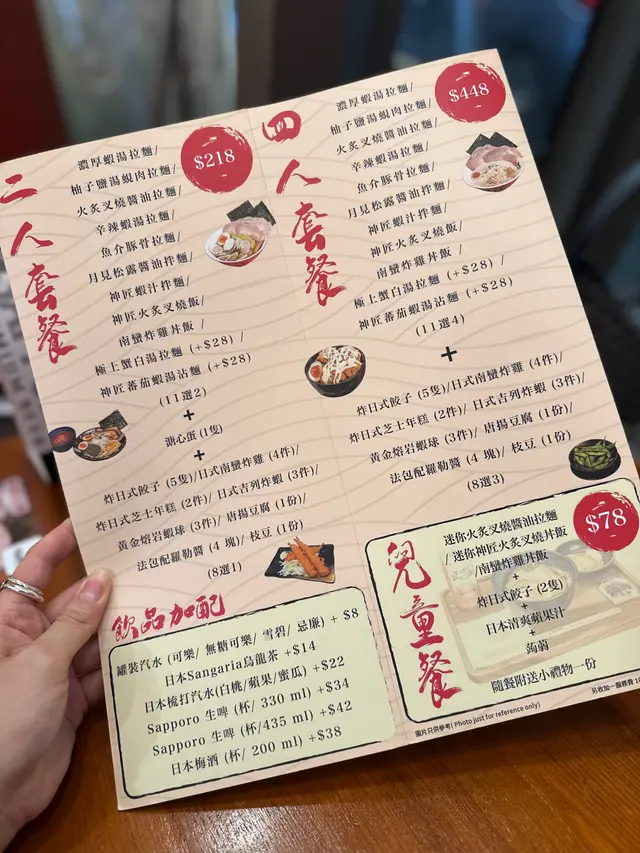 二人套餐
$218
濃厚蝦湯拉麵/
柚子鹽湯蜆肉拉麵/
火炙叉燒醬油拉麵/
辛辣蝦湯拉麵/
魚介豚骨拉麵/
月見松露醬油拌麵/
神匠蝦汁拌麵/
神匠火炙叉燒飯/
南蠻炸雞丼飯 /
極上蟹白湯拉麵 (+$28) /
神匠蕃茄蝦湯沾麵 (+$28)
(11選2)
+
溏心蛋 (1隻)
+
炸日式餃子 (5隻)/日式南蠻炸雞 (4件)/
炸日式芝士年糕 (2件)/ 日式吉列炸蝦 (3件)/
黃金熔岩蝦球 (3件)/ 唐揚豆腐 (1份)/
法包配羅勒醬 (4 塊)/ 枝豆 (1份)
(8選1)
飲品加配
罐裝汽水 (可樂/ 無糖可樂/ 雪碧/ 忌廉) + $8
日本Sangaria烏龍茶 +$14
日本梳打汽水(白桃/蘋果/蜜瓜) +$22
Sapporo 生啤 (杯/ 330 ml) +$34
Sapporo 生啤 (杯/435 ml) +$42
日本梅酒 (杯/ 200 ml) +$38
四人套餐
$448
濃厚蝦湯拉麵/
柚子鹽湯蜆肉拉麵/
火炙叉燒醬油拉麵/
辛辣蝦湯拉麵/
魚介豚骨拉麵/
月見松露醬油拌麵/
神匠蝦汁拌麵/
神匠火炙叉燒飯/
南蠻炸雞丼飯 /
極上蟹白湯拉麵 (+$28) /
神匠蕃茄蝦湯沾麵 (+$28)
(11選4)
+
炸日式餃子 (5隻)/日式南蠻炸雞 (4件)/
炸日式芝士年糕 (2件)/ 日式吉列炸蝦 (3件)/
黃金熔岩蝦球 (3件)/ 唐揚豆腐 (1份)/
法包配羅勒醬 (4 塊)/ 枝豆 (1份)
(8選3)
兒童餐
$78
迷你火炙叉燒醬油拉麵
/ 迷你神匠火炙叉燒丼飯
/南蠻炸雞丼飯
+
炸日式餃子 (2隻)
+
日本清爽蘋果汁
+
蒟蒻
隨餐附送小禮物一份
圖片只供參考( Photo just for reference only)
另收加一服務費